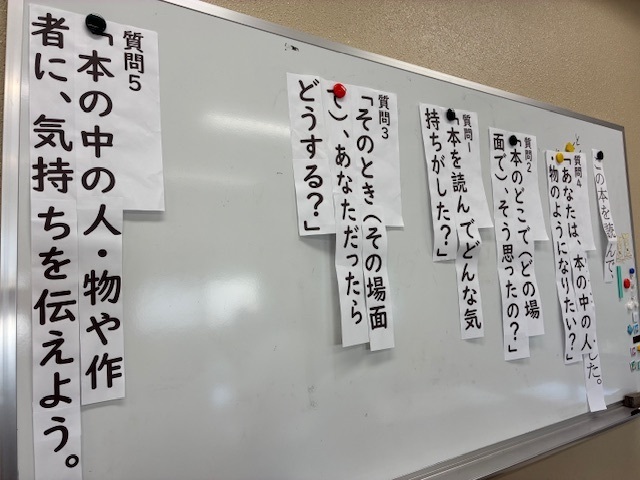 この本を読んで、
した。
質問4
「あなたは、本の中の人・
物のようになりたい?」
質問2
「本のどこで(どの場
面で)、そう思ったの?」
質問1
「本を読んでどんな気
持ちがした?」
質問3
「そのとき(その場面
で)、あなただったら
どうする?」
質問5
「本の中の人・物や作
者に、気持ちを伝えよう。